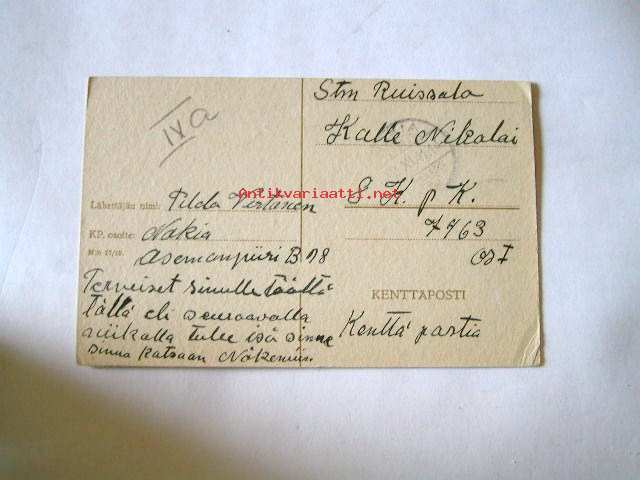 IVa
Lähettäjän nimi: Tilda Virtanen
KP. osoite: Nokia
M/n 27/19.
Asemanpiiri B 18
Terveiset sinulle täältä
tällä eli seuraavalla
viikolla tulee isä sinne
sinua katsaan Näkemiin
Stm Ruissalo
Kalle Nikolai
S K p K.
7763
os I
KENTTÄPOSTI
Kenttä postia
Antikvariaatti.net